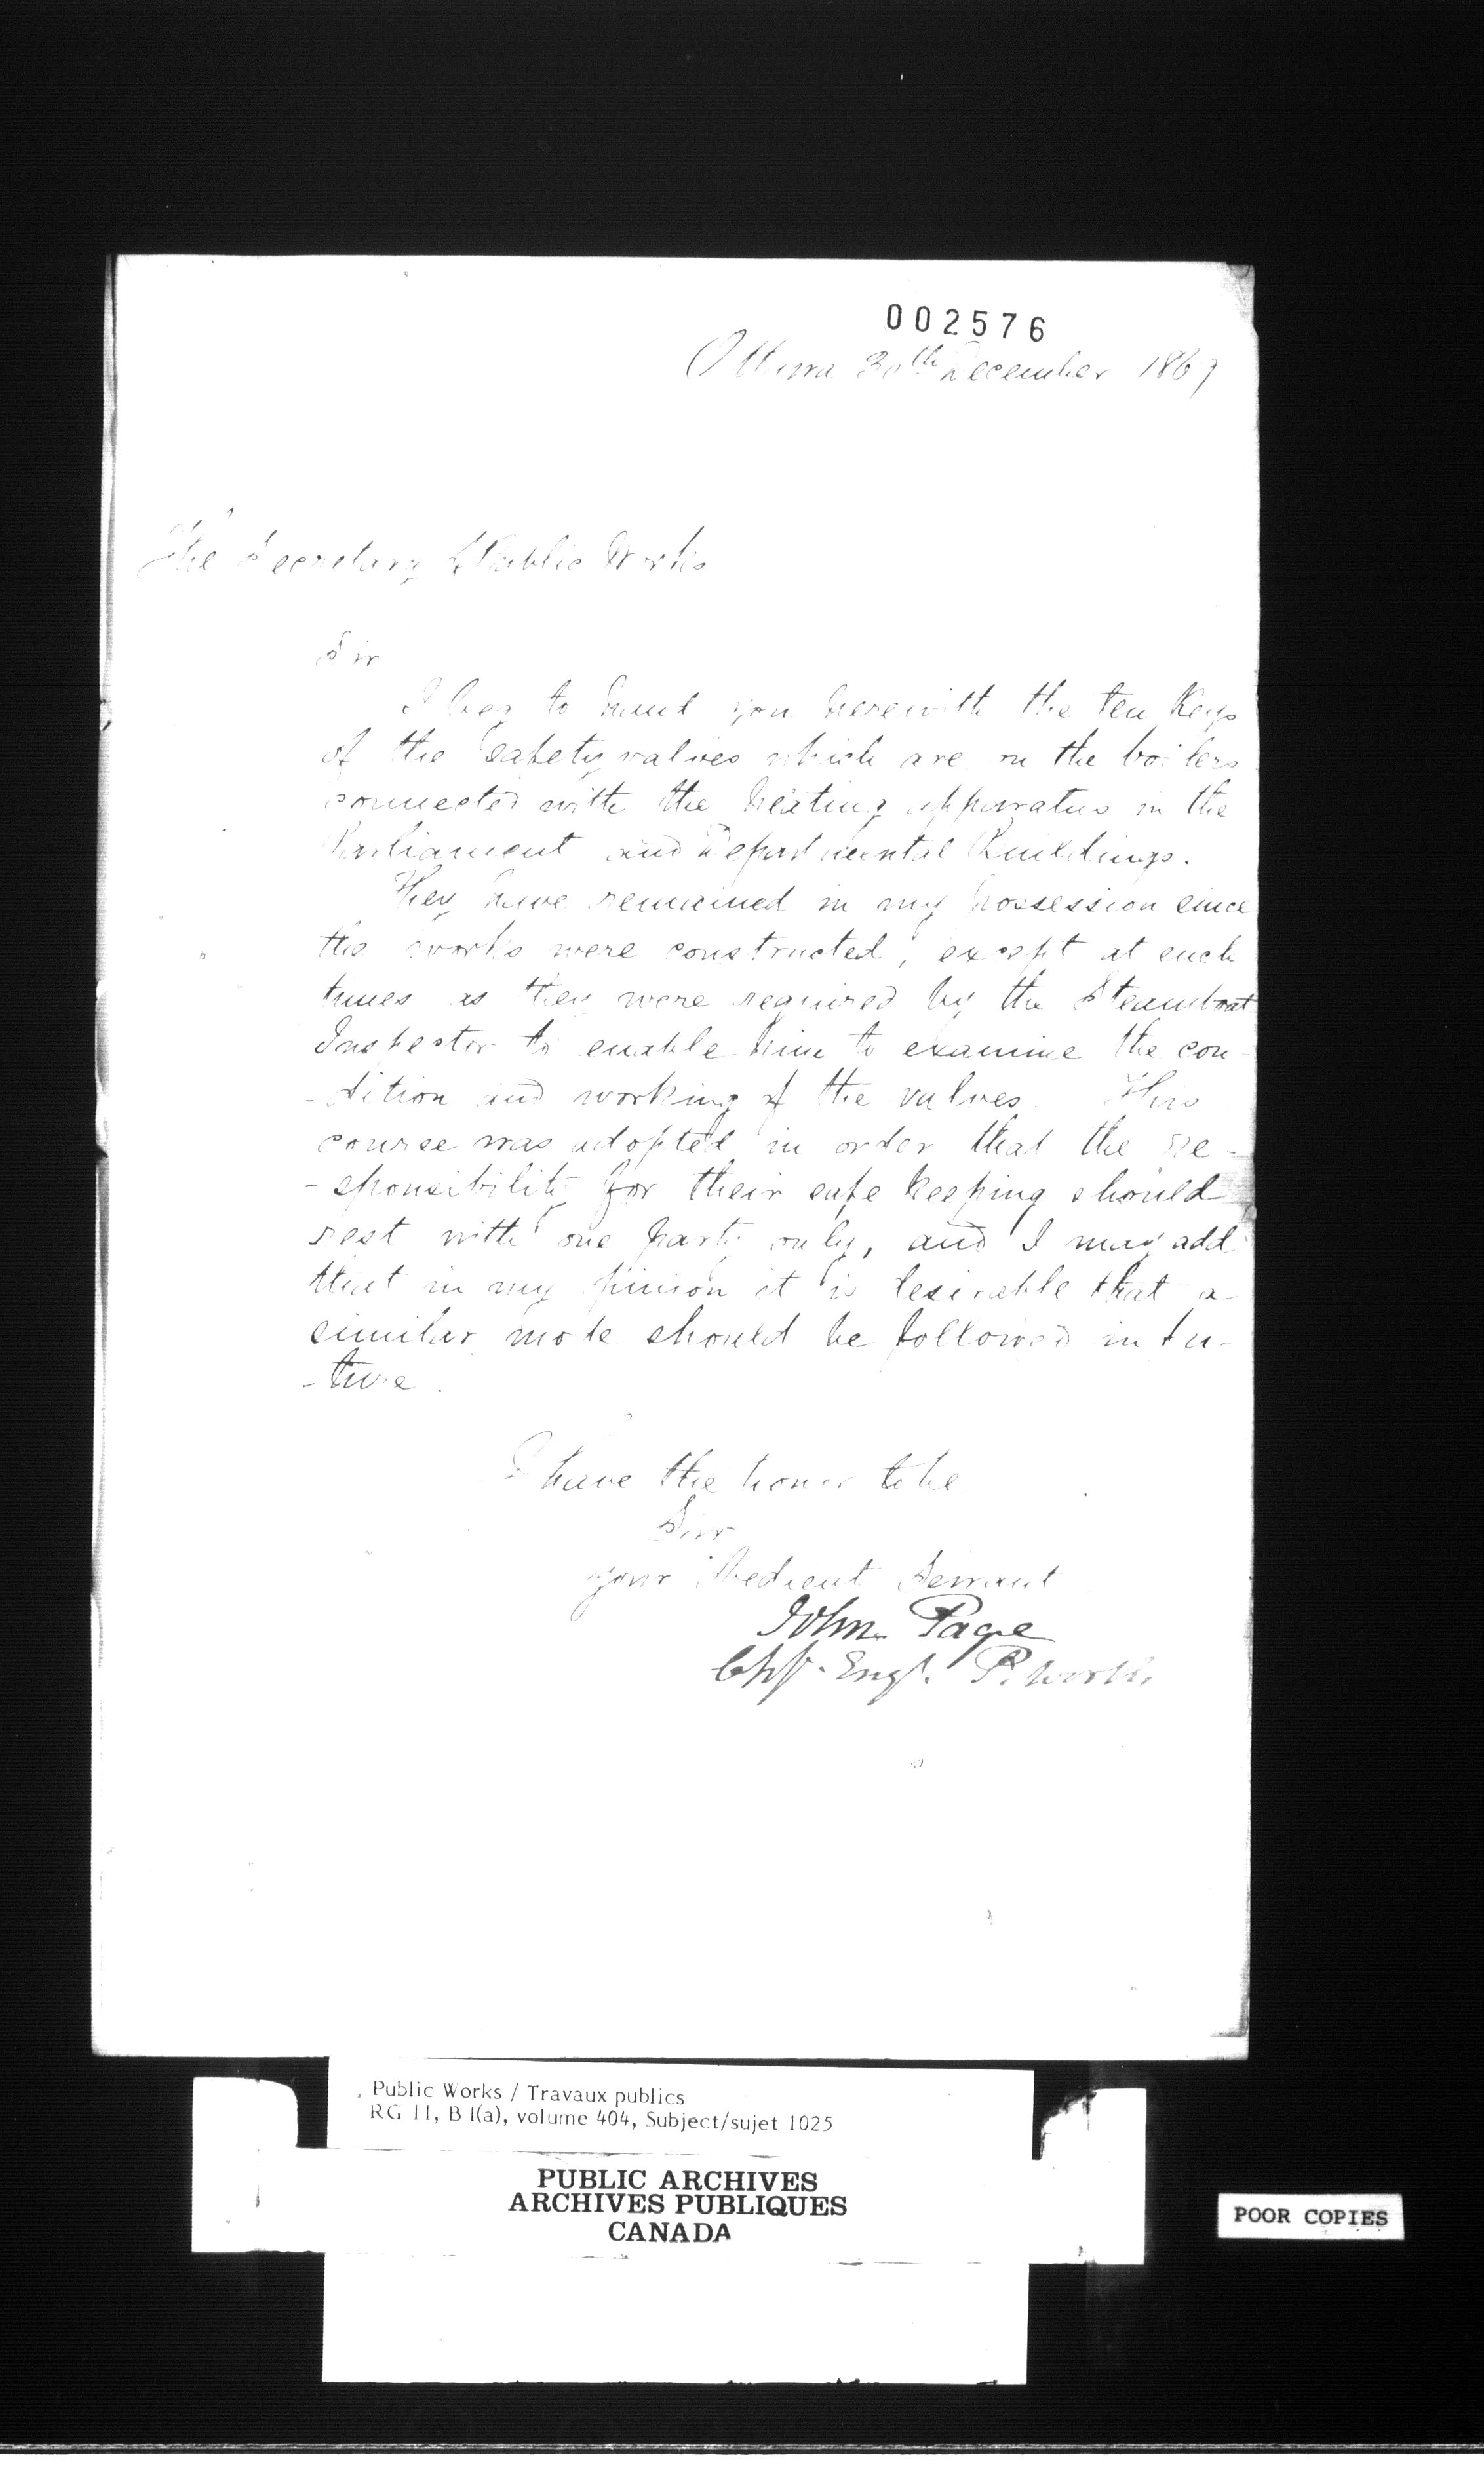 002576
Ottawa 30th December 1867
The Secretary of Public Works
Sir
I beg to hand you herewith the ten Keys
of the safety valves which are on the boilers
connected with the heating apparatus in the
Parliament and Departmental Buildings.
They have remained in my possession since
the works were constructed, except at such
times as they were required by the Steamboat
Inspector to enable him to examine the con
-dition and working of the valves. This
course was adopted in order that the re-
-sponsibility for their safe keeping should
rest with one party only, and I may add
that in my opinion it is desirable that a
similar mode should be followed in fu-
-ture.
I have the honor to be
Sir
your Obedient Servant
John Page
Chf. Engr. P. Works
Public Works / Travaux publics
RG 11, B 1(a), volume 404, Subject/sujet 1025
PUBLIC ARCHIVES
ARCHIVES PUBLIQUES
CANADA
POOR COPIES